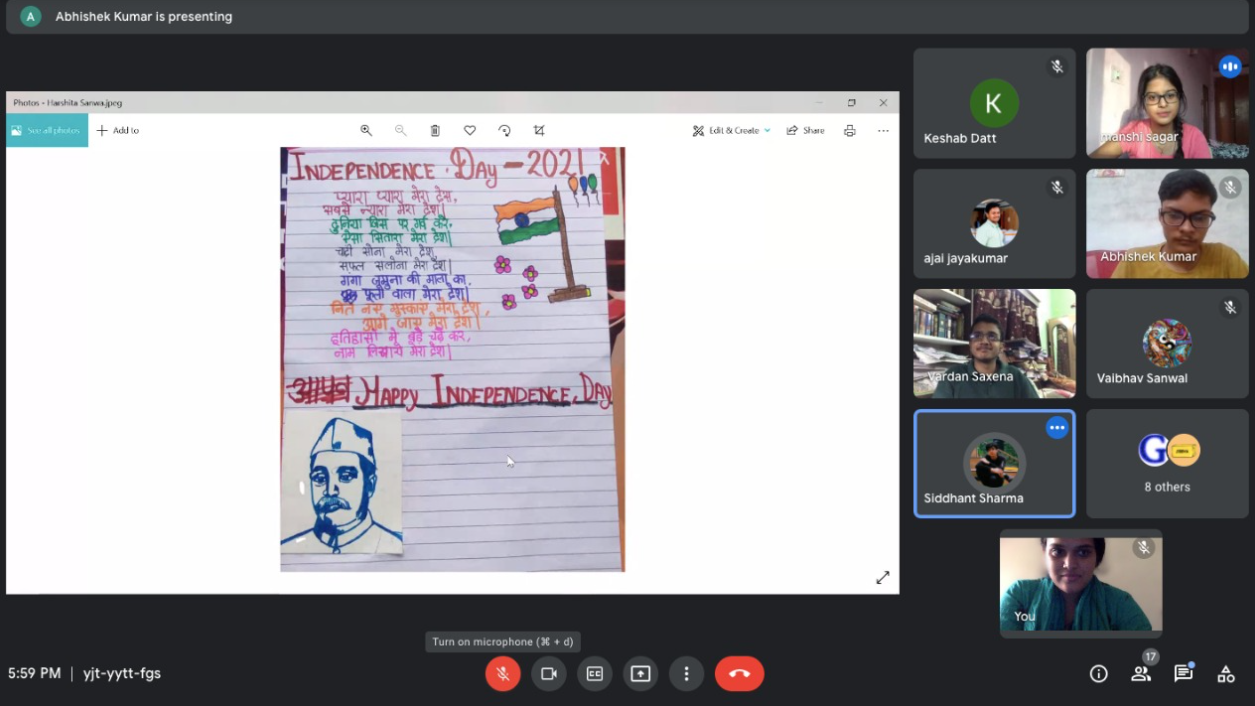 A
Abhishek Kumar is presenting
Photos - Harshita Sanwa.jpeg
See all photos
Add to
Edit & Create
Share
INDEPENDENCE DAY - 2021
प्यारा प्यारा मेरा देश,
सबसे न्यारा मेरा देश।
दुनिया जिस पर गर्व करे,
ऐसा सितारा मेरा देश।
चांदी सोना मेरा देश,
सफल सलोना मेरा देश।
गंगा जमुना की माला का,
फूलों वाला मेरा देश।
आगे जाए मेरा देश।
इतिहासों में बढ़ चढ़ कर,
नाम लिखाये मेरा देश।
HAPPY INDEPENDENCE DAY
K
Keshab Datt
manshi sagar
ajai jayakumar
Abhishek Kumar
Vardan Saxena
Vaibhav Sanwal
Siddhant Sharma
G
8 others
You
Turn on microphone (⌘ + d)
5:59 PM | yjt-yytt-fgs
CC
17